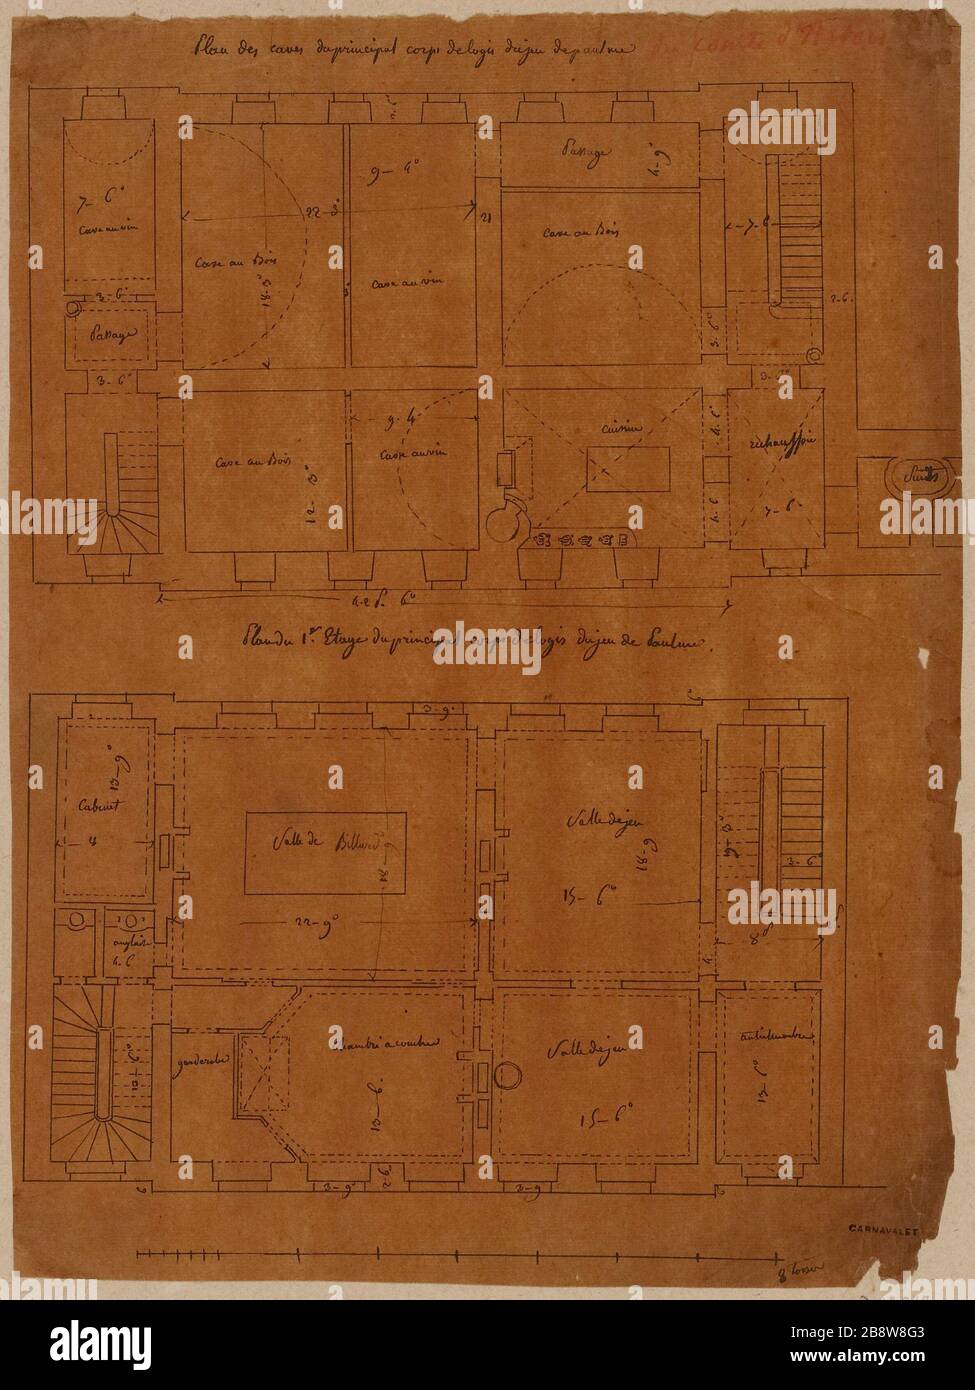 Plan des caves du principal corps de logis du jeu de paulme
Comte d'Artois
2-6
7-6°
Cave au vin
22-3°
Cave au Bois
18-3°
9-4°
Cave au vin
Passage
4-9°
21
Cave au Bois
7-6
3-6°
Passage
3-6°
3-6°
2-6.
3-6°
9-4°
Cave au Bois
12-3°
Cave au vin
Cuisine
4-6°
4-6
rechauffoir
7-6°
Puits
42 P. 6°
Plan du 1er Etage du principal corps de logis du jeu de Paulme.
3-9°
13-9
Cabinet
8
Salle de Billard
22-9°
Salle de jeu
18-9
15-6°
3-6°
8P
anglaise
4.6
garderobe
Chambre a coucher
13-6°
Salle de jeu
15-6°
antichambre
13-6°
3-9°
2-6
3-9
6
CARNAVALET
8 toises
alamy
Image ID: 2B8W8G3
www.alamy.com